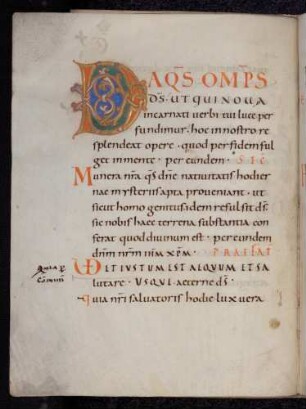 DA QS OMPS
DS · UT QUI NOUA
incarnati uerbi tui luce per
fundimur · hoc in nostro re
splendeat opere · quod per fidem ful
get in mente · per eundem · SEC
Munera nra qs dne natiuitatis hodier
nae mysteriis apta proueniant · ut
sicut homo genitus idem refulsit ds ·
sic nobis haec terrena substantia con
ferat quod diuinum est · per eundem
dnm nrm ihm xpm · PRAEFAT
UD ET IUSTUM EST AEQUUM ET SA
lutare · USQUE · aeterne ds ·
quia nri saluatoris hodie lux uera